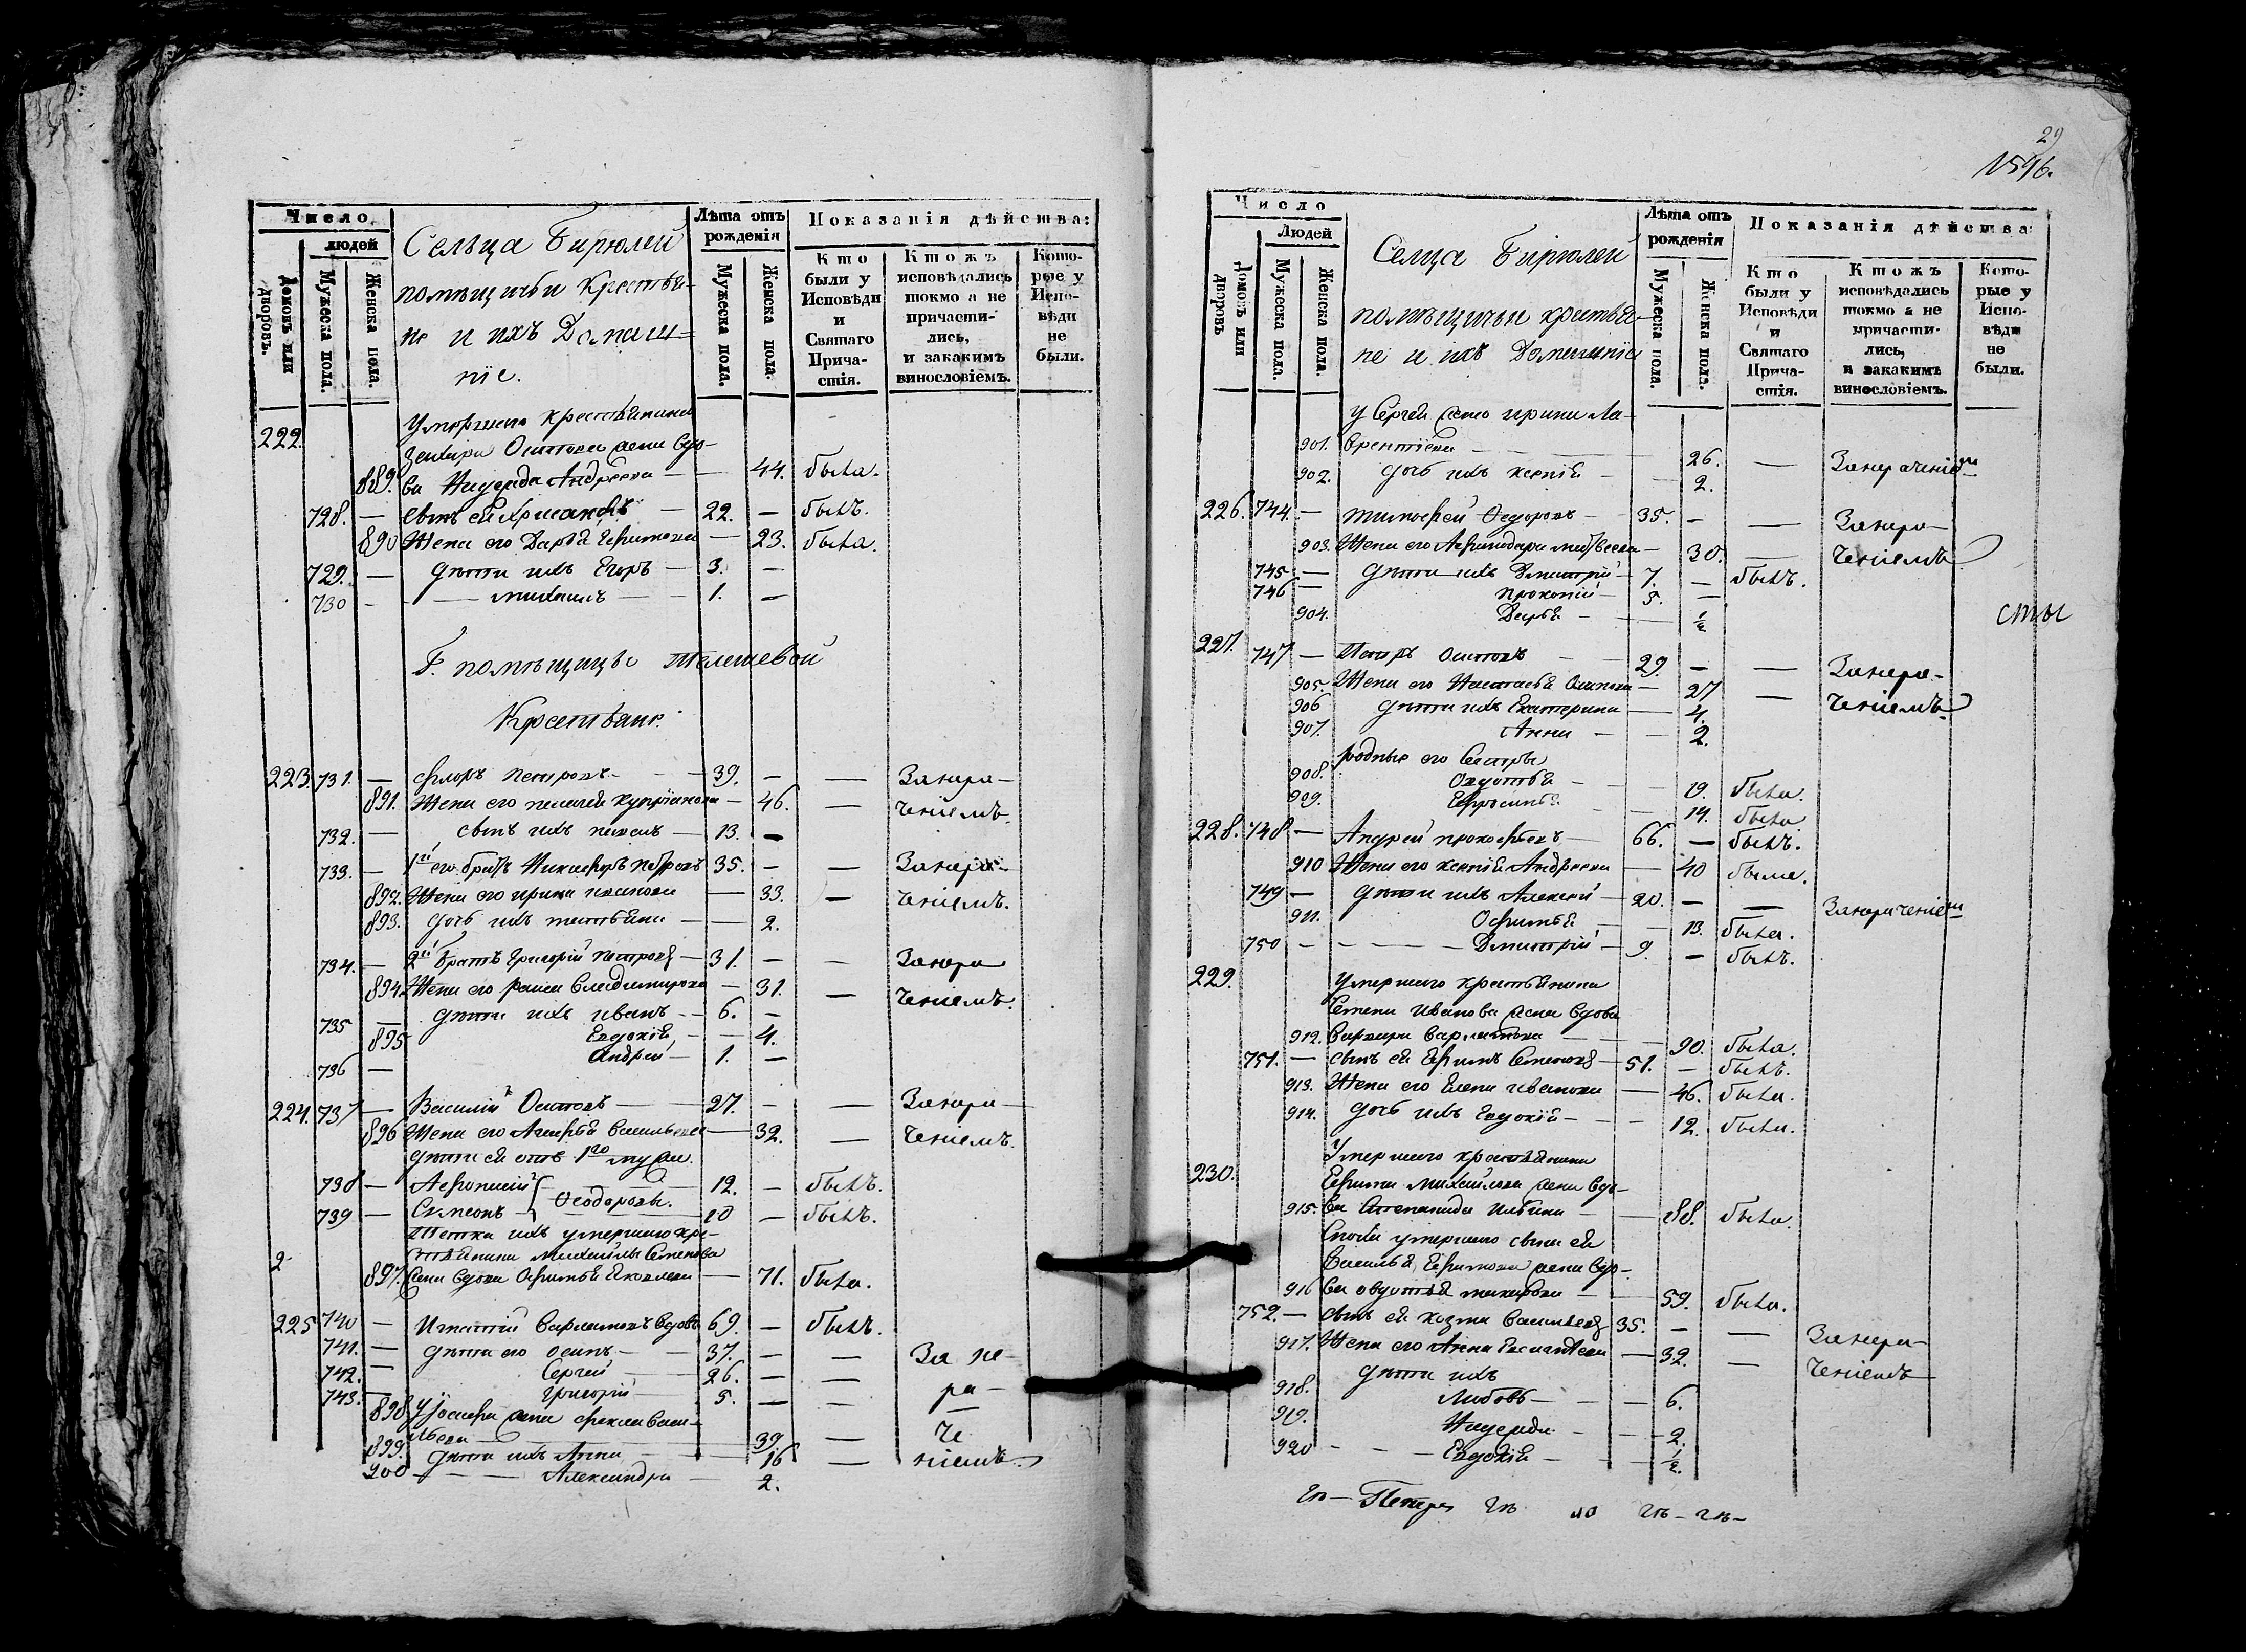 Число
людей
Домовъ или дворовъ.
Мужеска пола.
Женска пола.
Сельца Бирюлей
помѣщичьи крестья-
не и ихъ Домаш-
нiе.
Лѣта отъ рожденiя
Мужеска пола.
Женска пола.
Показанiя дѣйства:
Кто были у Исповѣди и Святаго Прича- стiя.
Ктожъ исповѣдались токмо а не причасти- лись, и закакимъ винословiемъ.
Кото- рые у Испо- вѣди не были.
222. Умершаго крестьянина
Осипова жена вдо-
889. ва Надежда Андреева — 44. была.
728. — сынъ ей Хрисанфъ — 22. — былъ.
890 Жена его Дарья Ефимова — 23. была.
729. — дѣти ихъ Егоръ — 3. —
730 — Михаилъ — 1. —
Г. помѣщицы Телешевой
Крестьяне.
223. 731. — Флоръ Петровъ — 39. — — Занера-
891. Жена его Пелагея Купрiянова — 46. — ченiемъ.
732. — сынъ ихъ Павелъ — 13. —
733. — 1й его братъ Никифоръ Петровъ 35. — — Занера-
892. Жена его Ирина — 33. — ченiемъ.
893. дочь ихъ Татьяна — 2.
734. — 2й братъ Григорiй Петровъ — 31. — — Занера
894. Жена его Раиса Владимирова — 31. — ченiемъ.
735 — дѣти ихъ Иванъ — 6. —
895 Евдокiя — 4.
736 — Андрей — 1. —
224. 737 — Василiй Осиповъ — 27. — — Занера-
896 Жена его Агафья Васильева — 32. — ченiемъ.
дѣти ей отъ 1го мужа.
738 — Афонасiй — 12. — былъ.
739 — Сѵмеонъ — Ѳеодоровы. 10 — былъ.
Тетка ихъ умершаго кре-
2 стьянина Михайлы Семенова
897. жена вдова Офимья Яковлева — 71. была.
225 740 — Игнатiй Варламовъ вдовъ 69. — былъ.
741. — дѣти его Осипъ — 37. — — За не-
742. — Сергей 26. — — ра-
743. — Григорiй 5. — —
898 У Iосифа жена Фекла Васи-
льева — 39 — че
899. дѣти ихъ Анна 16 — нiемъ.
900 — Александра — 2.
29
1596.
Число
Людей
Домовъ или дворовъ
Мужеска пола.
Женска пола.
Селца Бирюлей
помѣщичьи крестья-
не и ихъ Домашнiе
Лѣта отъ рожденiя
Мужеска пола.
Женска пола.
Показанiя дѣйства
Кто были у Исповѣди и Святаго Прича- стiя.
Ктожъ исповѣдались токмо а не причасти- лись, и закакимъ винословiемъ.
Кото- рые у Испо- вѣди не были.
У Сергея жена Ирина Ла-
901. врентiева — 26. — Занераченiемъ
902. дочь ихъ Ксенiя — 2.
226. 744. — Тимофей Ѳедоровъ — 35. — — Занера-
903. Жена его Матвеева — 30. — ченiемъ
745 — дѣти ихъ Дмитрiй — 7. — былъ.
746 — Прокопiй — 5. —
904. Дарья — ½
сты
227. 747 — Петръ Осиповъ — 29. — — Занера-
905. Жена его Настасья Осипова — 27 — ченiемъ
906 дѣти ихъ Екатерина — 4.
907. Анна — 2.
родные его сестры
908. Овдотья — 19. была.
909. Ефросинья — 14. была
228. 748 — Андрей Прокофьевъ — 66. — былъ.
910 Жена его Ксенiя Андреева — 40 была.
749 — дѣти ихъ Алексей — 20. — — Занераченiемъ
911. Офимья — 13. была.
750 — Дмитрiй — 9. — былъ.
229. Умершаго крестьянина
Семена Иванова жена вдова
912. Варвара Варламова — 90. была.
751. — сынъ ей Ефимъ Семеновъ — 51. — былъ.
913. Жена его Елена Иванова — 46. была.
914. дочь ихъ Евдокiя — 12. была.
Умершаго крестьянина
230. Ефима Михайлова жена вдо-
915. ва Степанида Ильина — 88. была.
Сноха умершаго сына ей
Василья Ефимова жена вдо-
916 ва Овдотья — 59. была.
752. — сынъ ей Козма Васильевъ 35. — — Занера-
917. Жена его Анна — 32. — ченiемъ
дѣти ихъ
918. Любовь — 6.
919. Надежда — 2.
920 — Евдокiя — ½.
Петръ